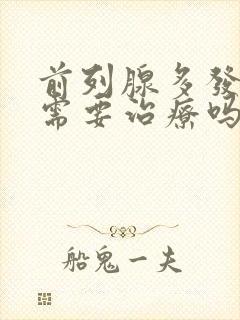 前列腺多發
需要治療嗎
船鬼一夫